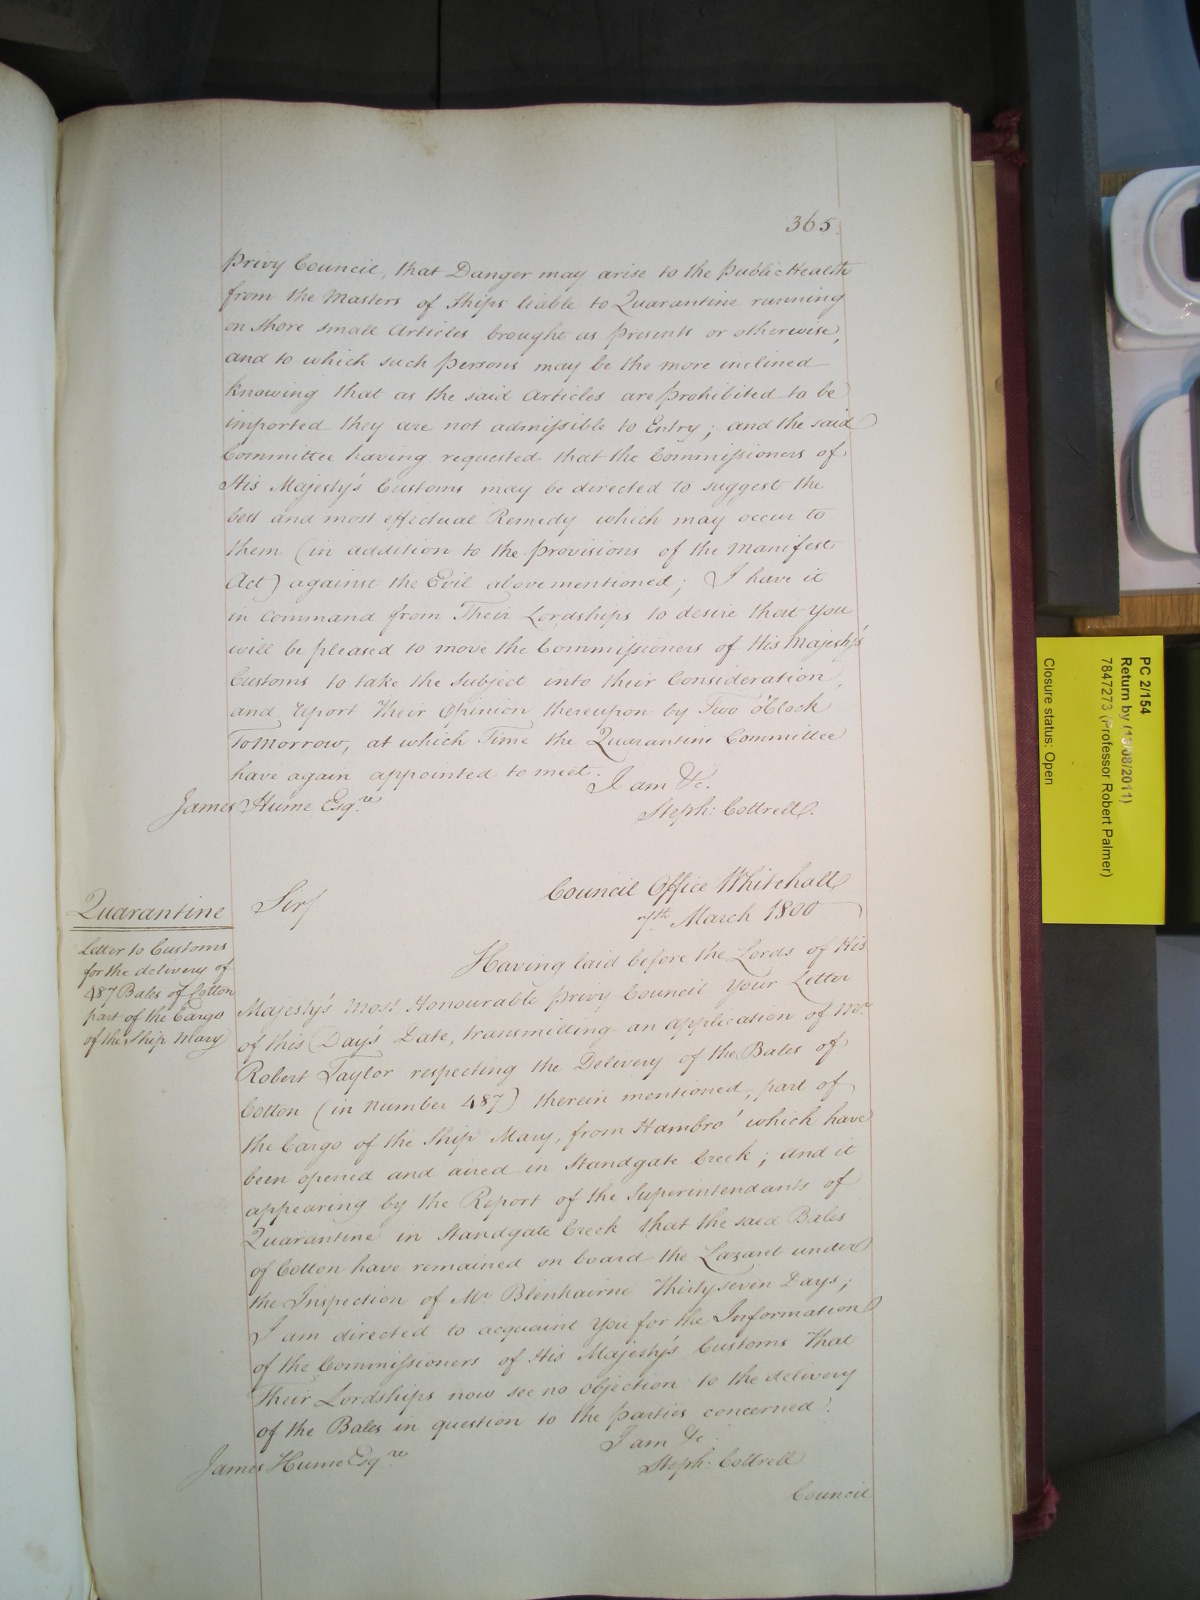 365.
Privy Council, that Danger may arise to the Public Health
from the Masters of Ships liable to Quarantine running
on Shore small Articles brought as Presents or otherwise,
and to which such Persons may be the more inclined
knowing that as the said Articles are prohibited to be
imported they are not admissible to Entry; and the said
Committee having requested that the Commissioners of
His Majesty's Customs may be directed to suggest the
best and most effectual Remedy which may occur to
them (in addition to the provisions of the Manifest
Act) against the Evil abovementioned; I have it
in Command from Their Lordships to desire that You
will be pleased to move the Commissioners of His Majesty's
Customs to take the Subject into their Consideration,
and report Their Opinion thereupon by Two o'Clock
ToMorrow, at which Time the Quarantine Committee
have again appointed to meet.
I am &c.
James Hume Esqre
Steph: Cottrell.
Quarantine
Letter to Customs
for the delivery of
487 Bales of Cotton
part of the Cargo
of the Ship Mary
Council Office Whitehall
7th March 1800
Sir/
Having laid before the Lords of His
Majesty's Most Honourable Privy Council Your Letter
of this Day's Date, transmitting an application of Mr
Robert Taylor respecting the Delivery of the Bales of
Cotton (in Number 487) therein mentioned, part of
the Cargo of the Ship Mary, from Hambro' which have
been opened and aired in Standgate Creek; and it
appearing by the Report of the Superintendants of
Quarantine in Standgate Creek that the said Bales
of Cotton have remained on board the Lazaret under
the Inspection of Mr Thirty seven Days;
I am directed to acquaint You for the Information
of the Commissioners of His Majesty's Customs That
Their Lordships now see no objection to the delivery
of the Bales in question to the parties concerned.
I am &c
James Hume Esqre
Steph: Cottrell
Council
PC 2/154
Return by (/08/2011)
7847273 (Professor Robert Palmer)
Closure status: Open